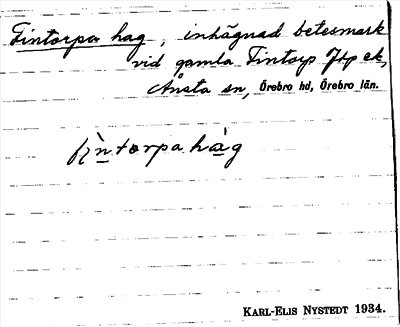 Fintorpa hag, inhägnad betesmark
vid gamla Fintorp Htp ek,
Ånsta sn, Örebro hd, Örebro län.
fi̱ǹtorpa hàg
KARL-ELIS NYSTEDT 1934.